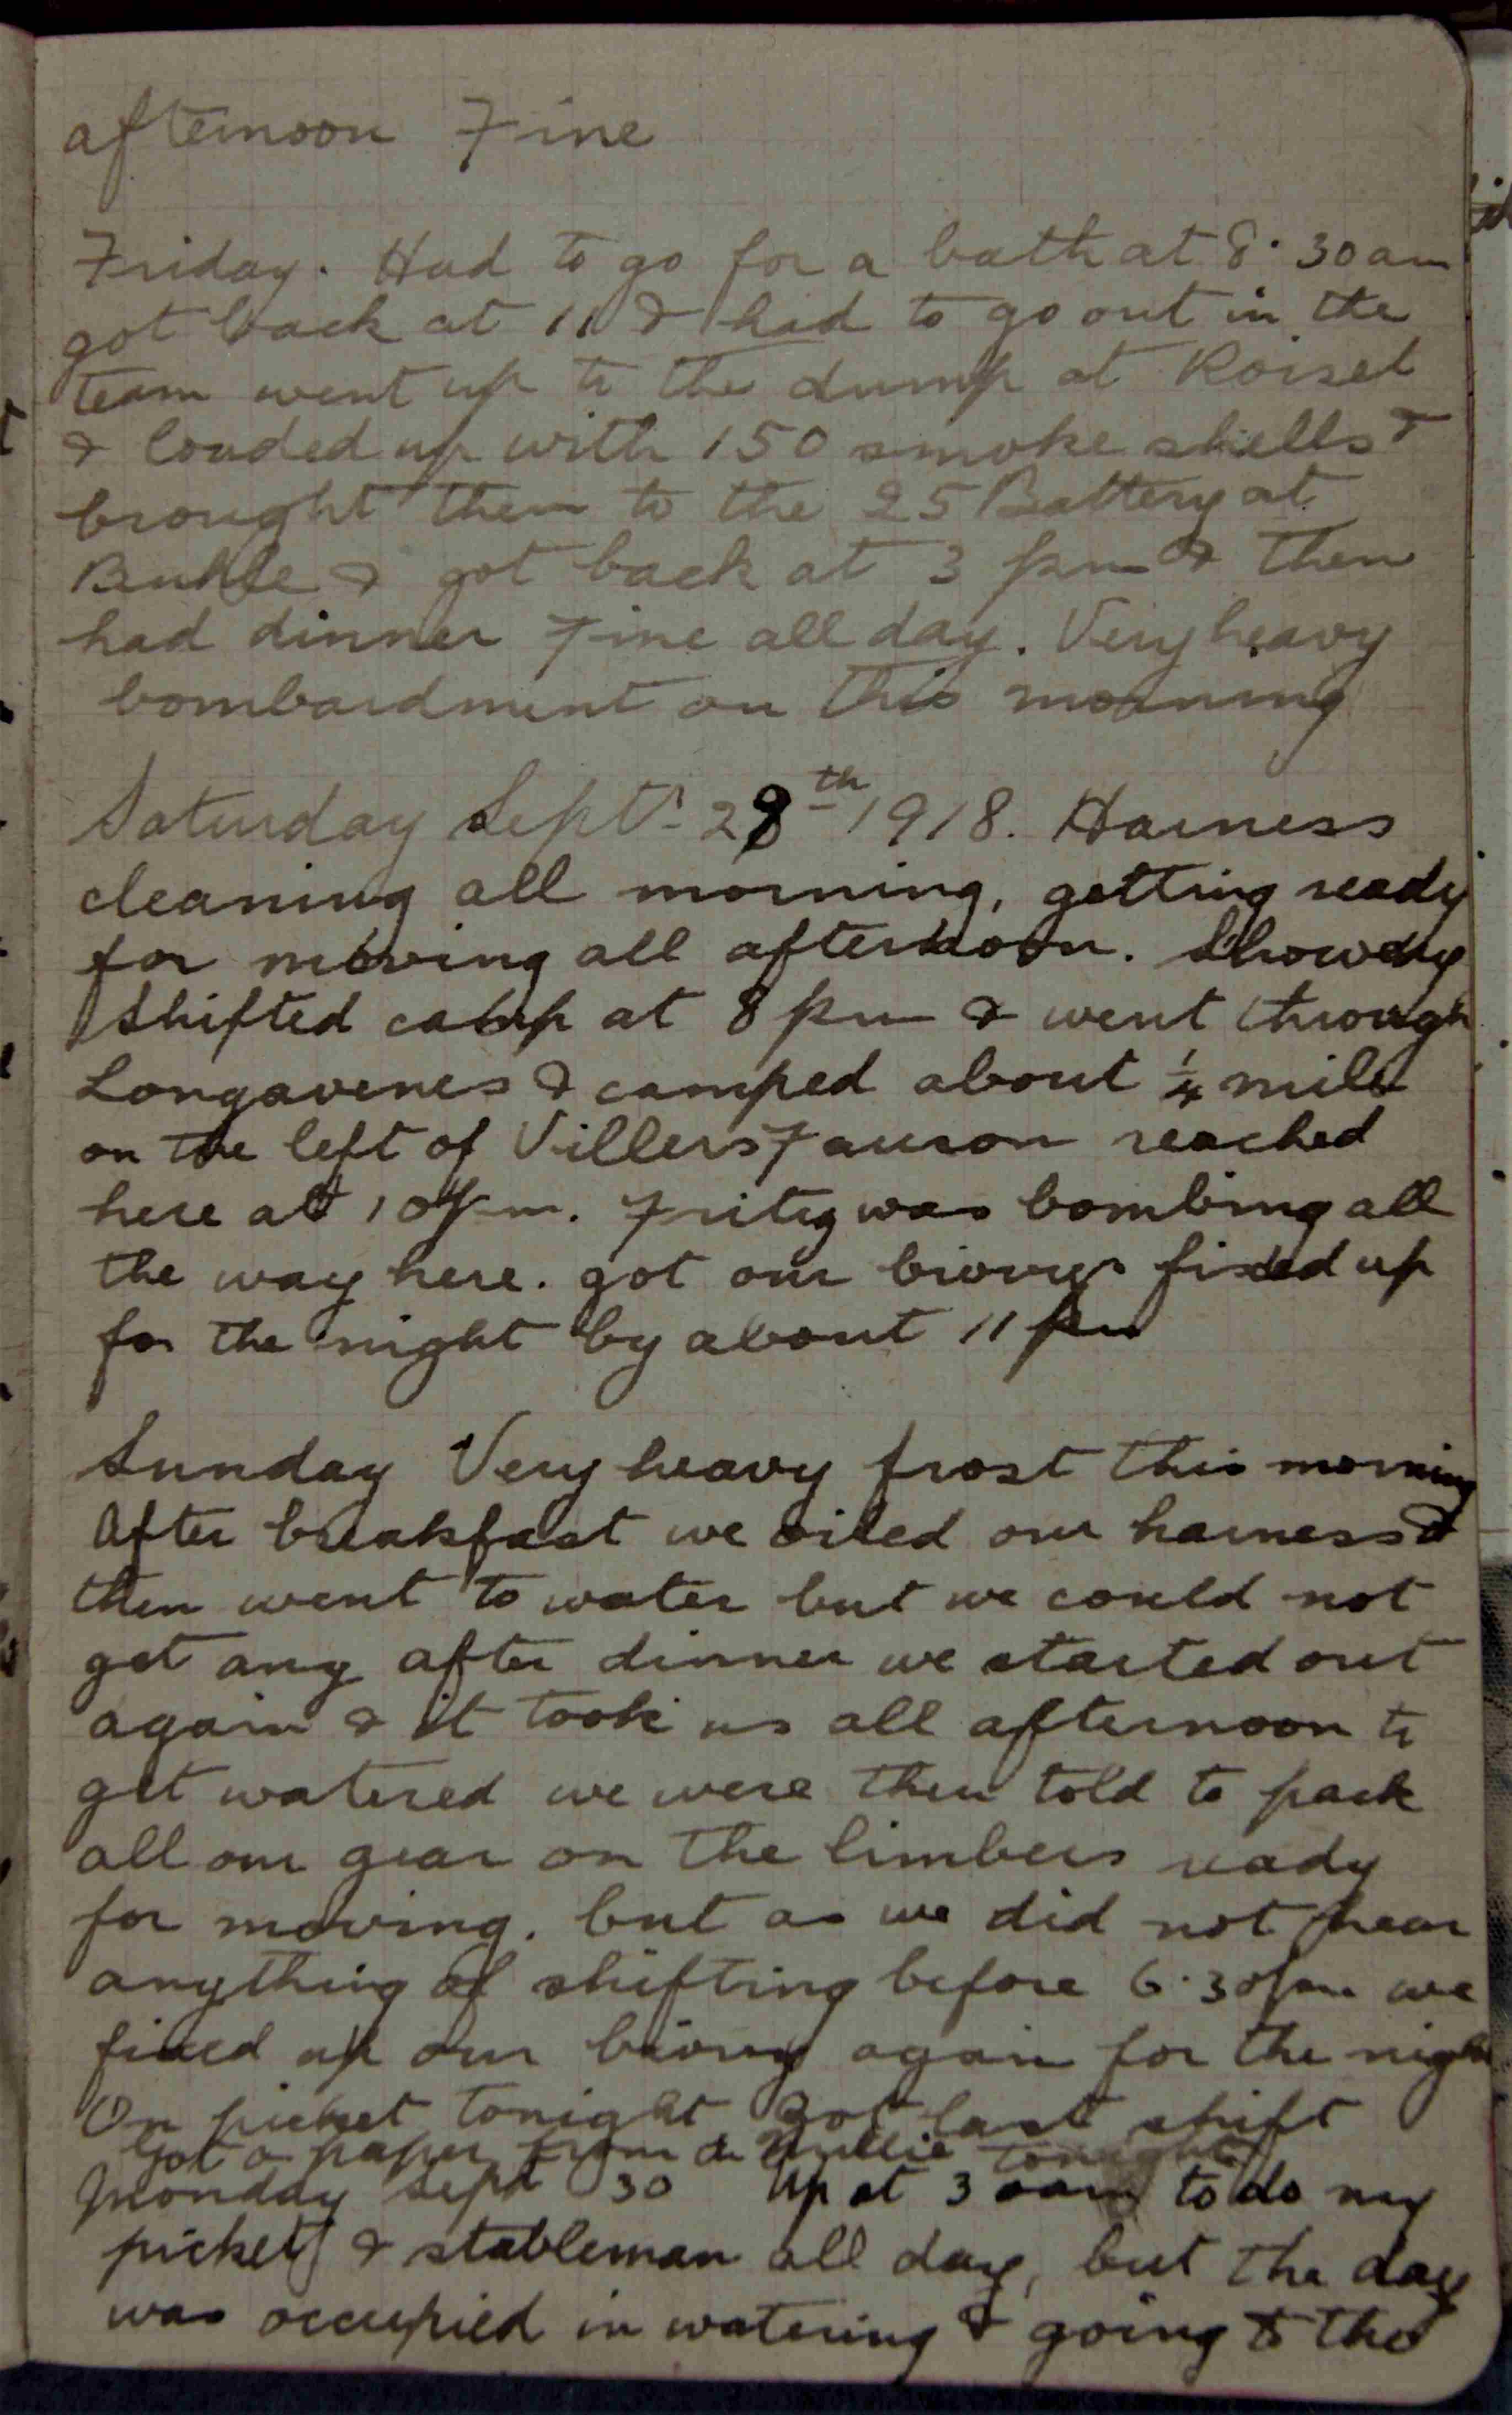 afternoon Fine
Friday. Had to go for a bath at 8.30 am
got back at 11 & had to go out in the
team went up to the dump at Roisel
& loaded up with 150 smoke shells &
brought them to the 25 Battery at
& got back at 3 pm & then
had dinner Fine all day. Very heavy
bombardment on this morning
Saturday Sept. 28th 1918. Harness
cleaning all morning, getting ready
for moving all afternoon. Showery
Shifted camp at 8 pm & went through
Longavenes & camped about 1/4 mile
on the left of Villers Faucon reached
here at 10 pm. Fritz was bombing all
the way here. got our bivvys fixed up
for the night by about 11 pm
Sunday Very heavy frost this morning
After breakfast we oiled our harness &
then went to water but we could not
get any after dinner we started out
again & it took us all afternoon to
get watered we were then told to pack
all our gear on the limbers ready
for moving. but as we did not hear
anything of shifting before 6.30 pm we
fixed up our bivvy again for the night
On picket tonight Got last shift
Got a paper from tonight
Monday Sept 30 Up at 3 am to do my
picket & stableman all day, but the day
was occupied in watering & going to the